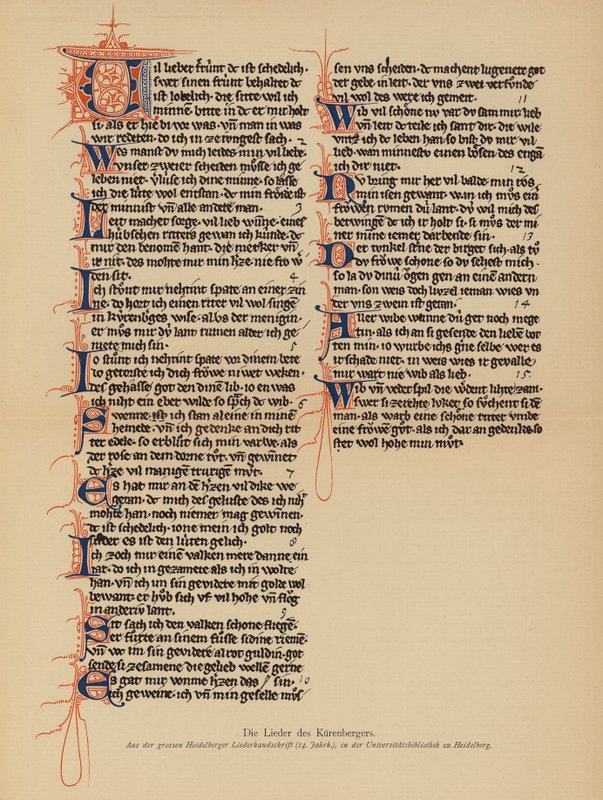 Vil lieber frúnt dc ist schedelich.
swer sinen frúnt behaltet dc
ist lobelich. die sitte wil ich
minnen. bitte in dc er mir holt
si. als er hie bi vor was. vn̄ man in was
wir redeten. do ich in ze iungest sach. 2
Wes manst dv mich leides min vil liebe.
vnser zweier scheiden můsse ich ge
leben niet. vlúse ich dine minne. so lasse
ich die lúte wol entstan. dc min frőide ist
der minnist. vn̄ alle andere man. 3
Leit machet sorge. vil lieb wūne. eines
hubschen ritters gewan ich kúnde. dc
mir den benomē hant. die merker vn̄
ir nit. des mohte mir min h͛ze nie fro w͛
den sit. 4
Ich stůnt mir nehtint spate an einer zin
ne. do hort ich einen riter vil wol singē
in kúrenb͛ges wise. al vs der menigin.
er můs mir dú lant rumen alder ich ge
niete mich sin. 5
Io stůnt ich nehtint spate vor dinem bete
do getorste ich dich frőwe niwet weken.
des gehasse got den dinē lib. io en was
ich niht ein eber wilde so sp͛ch dc wib. 6
Swenne ich stan aleine in minē
hemede. vn̄ ich gedenke an dich rit
ter edele. so erblůt sich min varwe als
der rose an dem dorne tůt. vn̄ gewinet
dc h͛ze vil manigē trurigen můt. 7
Es hat mir an dē h͛zen vil dike we
getan. dc mich des geluste des ich niht
mohte han. noch niemer mag gewinen.
dc ist schedelich. ione mein ich golt noch
silber es ist den lúten gelich. 8
Ich zoch mir einē valken mere danne ein
iar. do ich in gezamete als ich in wolte
han. vn̄ ich im sin gevidere mit golde wol
bewant. er hůb sich vf vil hohe vn̄ flőg
in anderiu lant. 9
Sit sach ich den valken schone fliegē.
er fůrte an sinem fůsse sidine riemē.
vn̄ was im sin gevidere alrot guldin. got
sende si zesamene die gelieb wellē gerne sin. 10
Es gat mir vonme h͛zen das
ich geweine. ich vn̄ min geselle můs
sen vns scheiden. dc machent lugenere got
der gebe in leit. der vns zwei versvnde
vil wol des were ich gemeit. 11
Wib vil schőne nv var dv sam mir lieb
vn̄ leit dc teile ich sant dir. die wile
vnz ich dc leben han so bist dv mir vil
lieb. wan minnestv einen bősen. des engā
ich dir niet. 12
Nv bring mir her vil balde min ros.
min isen gewant. wan ich můs ein͛
frőwen rvmen dú lant. dú wil mich des
betwingen dc ich ir holt si. si můs der mi
ner minne iemer darbende sin. 13
Der tvnkel sterne der birget sich. als tů
dv frőwe schone so dv sehest mich.
so la dv dinú őgen gen an einē andern
man. son weis doch lúzel ieman wies vn
der vns zwein ist getan. 14
Aller wibe wūnne dú get noch mege
tin. als ich an si gesende den liebē bot
ten min. io wurbe ichs gne selbe wer es
ir schade niet. in weis wies ir gevalle
mir wart nie wib als lieb. 15.
Wib vn̄ vederspil die w͛dent lihte zam.
swer si zerehte lvket. so sůchent si dē
man. als warb eine schőne ritter vmbe
eine frőwē gůt. als ich dar an gedenke. so
stet wol hohe min můt.
Die Lieder des Kürenbergers.
Aus der grossen Heidelberger Liederhandschrift (14. Jahrh.), in der Universitätsbibliothek zu Heidelberg.